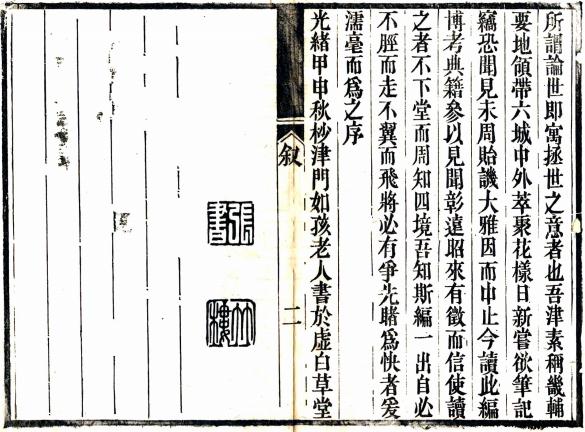 所謂論世即寓拯世之意者也吾津素稱畿輔
要地領帶六城中外萃聚花樣日新嘗欲筆記
竊恐聞見未周貽譏大雅因而中止今讀此編
博考典籍參以見聞彰遠昭來有徵而信使讀
之者不下堂而周知四境吾知斯編一出自必
不脛而走不翼而飛將必有爭先睹爲快者爰
濡毫而爲之序
光緒甲申秋杪津門如孩老人書於虛白草堂
叙
二